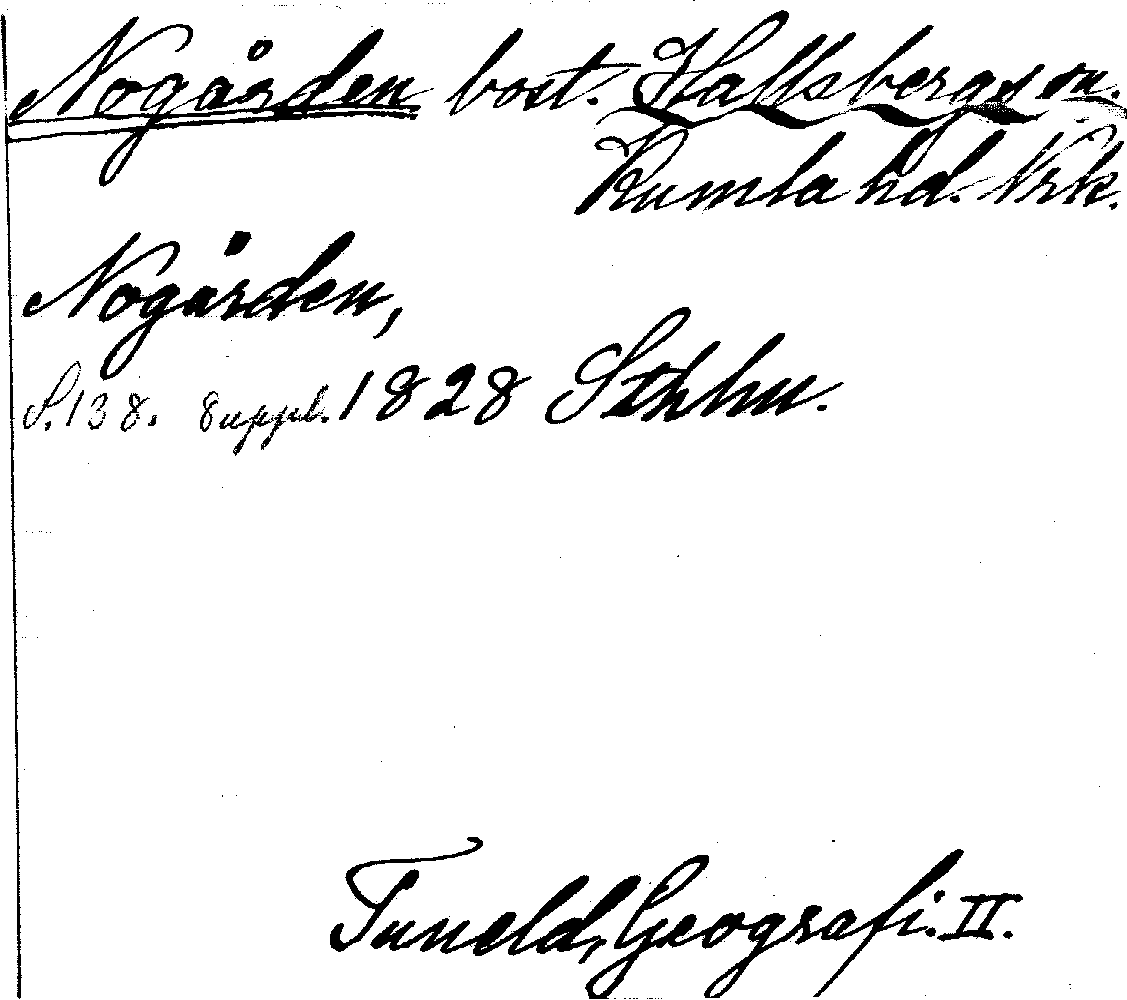 Nogården bost. Hallsbergs sn.
Kumla hd. Nrk.
Nogården,
S. 138. Suppl. 1828 Sthlm.
Tuneld, Geografi. II.